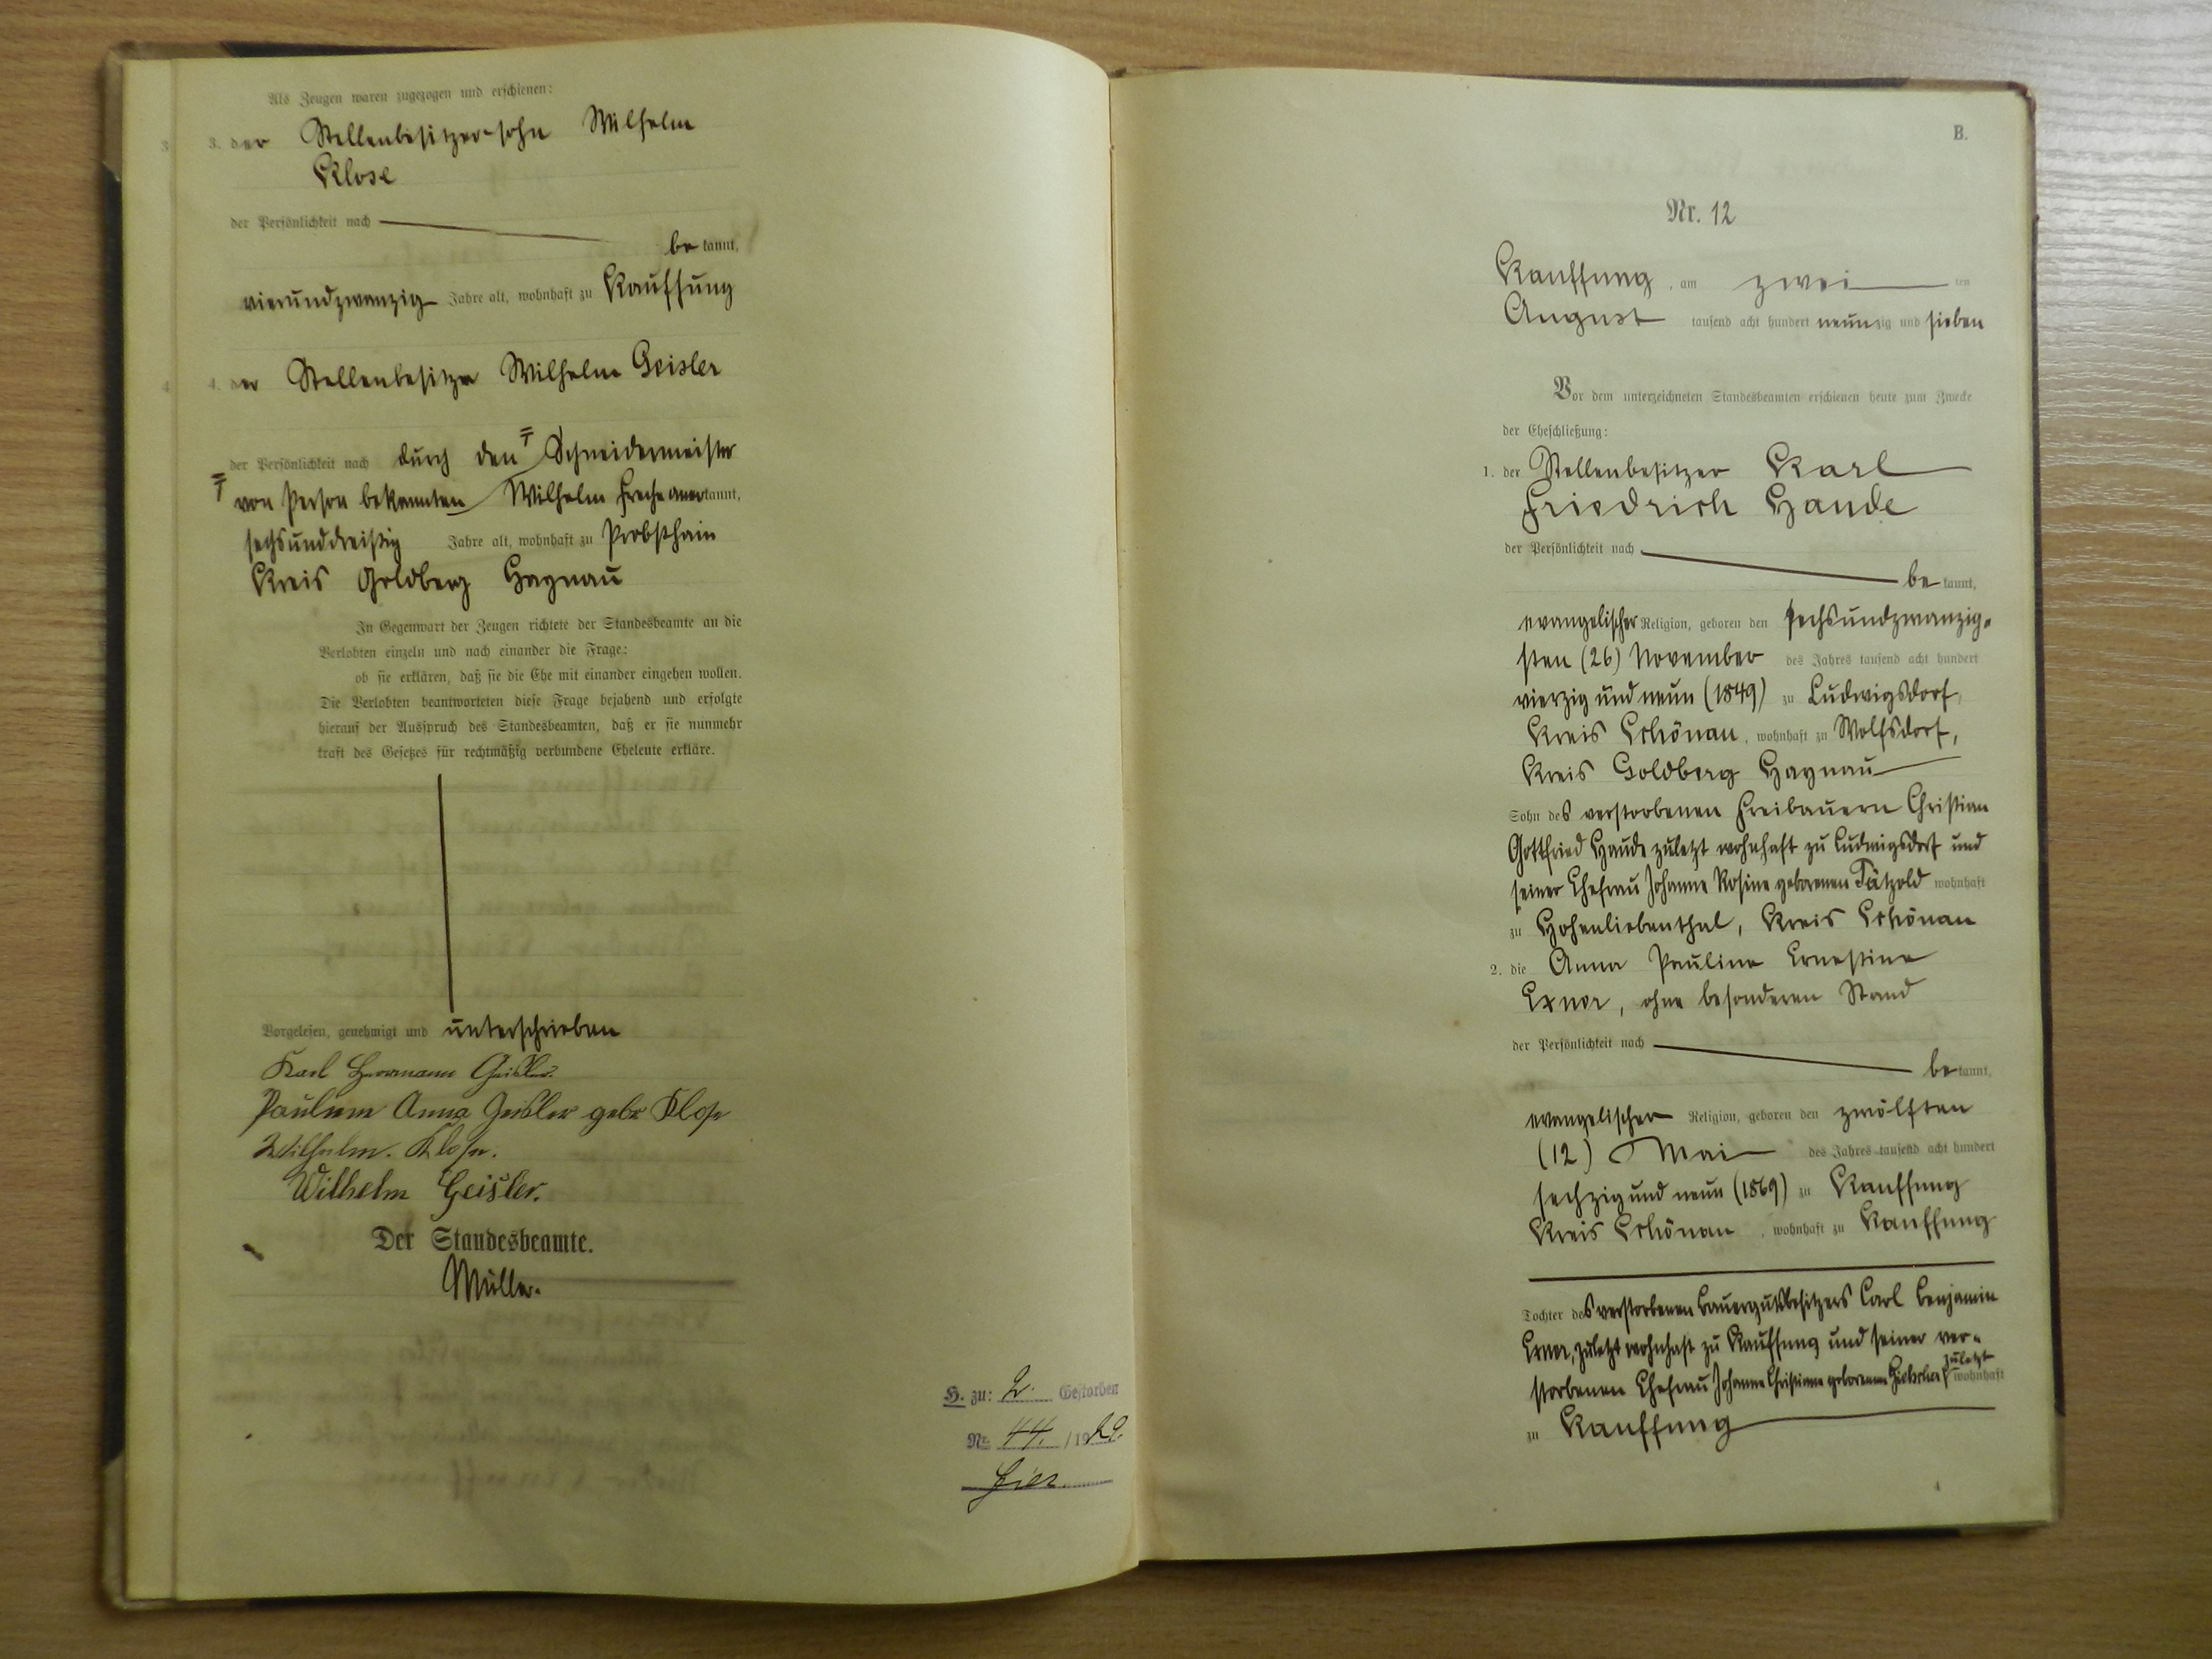 Als Zeugen waren zugezogen und erschienen:
3
3. der Stellenbesitzersohn Wilhelm
Klose
der Persönlichkeit nach
be kannt,
vierundzwanzig Jahre alt, wohnhaft zu Kauffung
4
4. der Stellenbesitzer Wilhelm Geisler
der Persönlichkeit nach durch den Schneidermeister
von Person bekannten Wilhelm Freche anerkannt,
sechsunddreißig Jahre alt, wohnhaft zu Probsthain
Kreis Goldberg Haynau
In Gegenwart der Zeugen richtete der Standesbeamte an die
Verlobten einzeln und nach einander die Frage:
ob sie erklären, daß sie die Ehe mit einander eingehen wollen.
Die Verlobten beantworteten diese Frage bejahend und erfolgte
hierauf der Ausspruch des Standesbeamten, daß er sie nunmehr
kraft des Gesetzes für rechtmäßig verbundene Eheleute erkläre.
Vorgelesen, genehmigt und unterschrieben
Karl Herrmann Geisler.
Pauline Anna Geisler gebr Klose
Wilhelm. Klose.
Wilhelm Geisler.
Der Standesbeamte.
Müller.
H. zu: 2. Gestorben
Nr. 44. /1929.
hier
B.
Nr. 12
Kauffung, am zwei ten
August tausend acht hundert neunzig und sieben
Vor dem unterzeichneten Standesbeamten erschienen heute zum Zwecke
der Eheschließung:
1. der Stellenbesitzer Karl
Friedrich Haude
der Persönlichkeit nach
be kannt,
evangelischer Religion, geboren den sechsundzwanzig-
sten (26) November des Jahres tausend acht hundert
vierzig und neun (1849) zu Ludwigsdorf,
Kreis Schönau, wohnhaft zu Wolfsdorf,
Kreis Goldberg Haynau
Sohn des verstorbenen Freibauern Christian
Gottfried Haude zuletzt wohnhaft zu Ludwigsdorf und
seiner Ehefrau Johanne Rosine geborenen Pätzold wohnhaft
zu Hohenliebenthal, Kreis Schönau
2. die Anna Pauline Ernestine
Exner, ohne besonderen Stand
der Persönlichkeit nach
be kannt,
evangelischer Religion, geboren den zwölften
(12) Mai des Jahres tausend acht hundert
sechzig und neun (1869) zu Kauffung
Kreis Schönau, wohnhaft zu Kauffung
Tochter des verstorbenen Bauergutsbesitzers Carl Benjamin
Exner, zuletzt wohnhaft zu Kauffung und seiner ver-
storbenen Ehefrau Johanne Christiane geborenen zuletzt wohnhaft
zu Kauffung
4